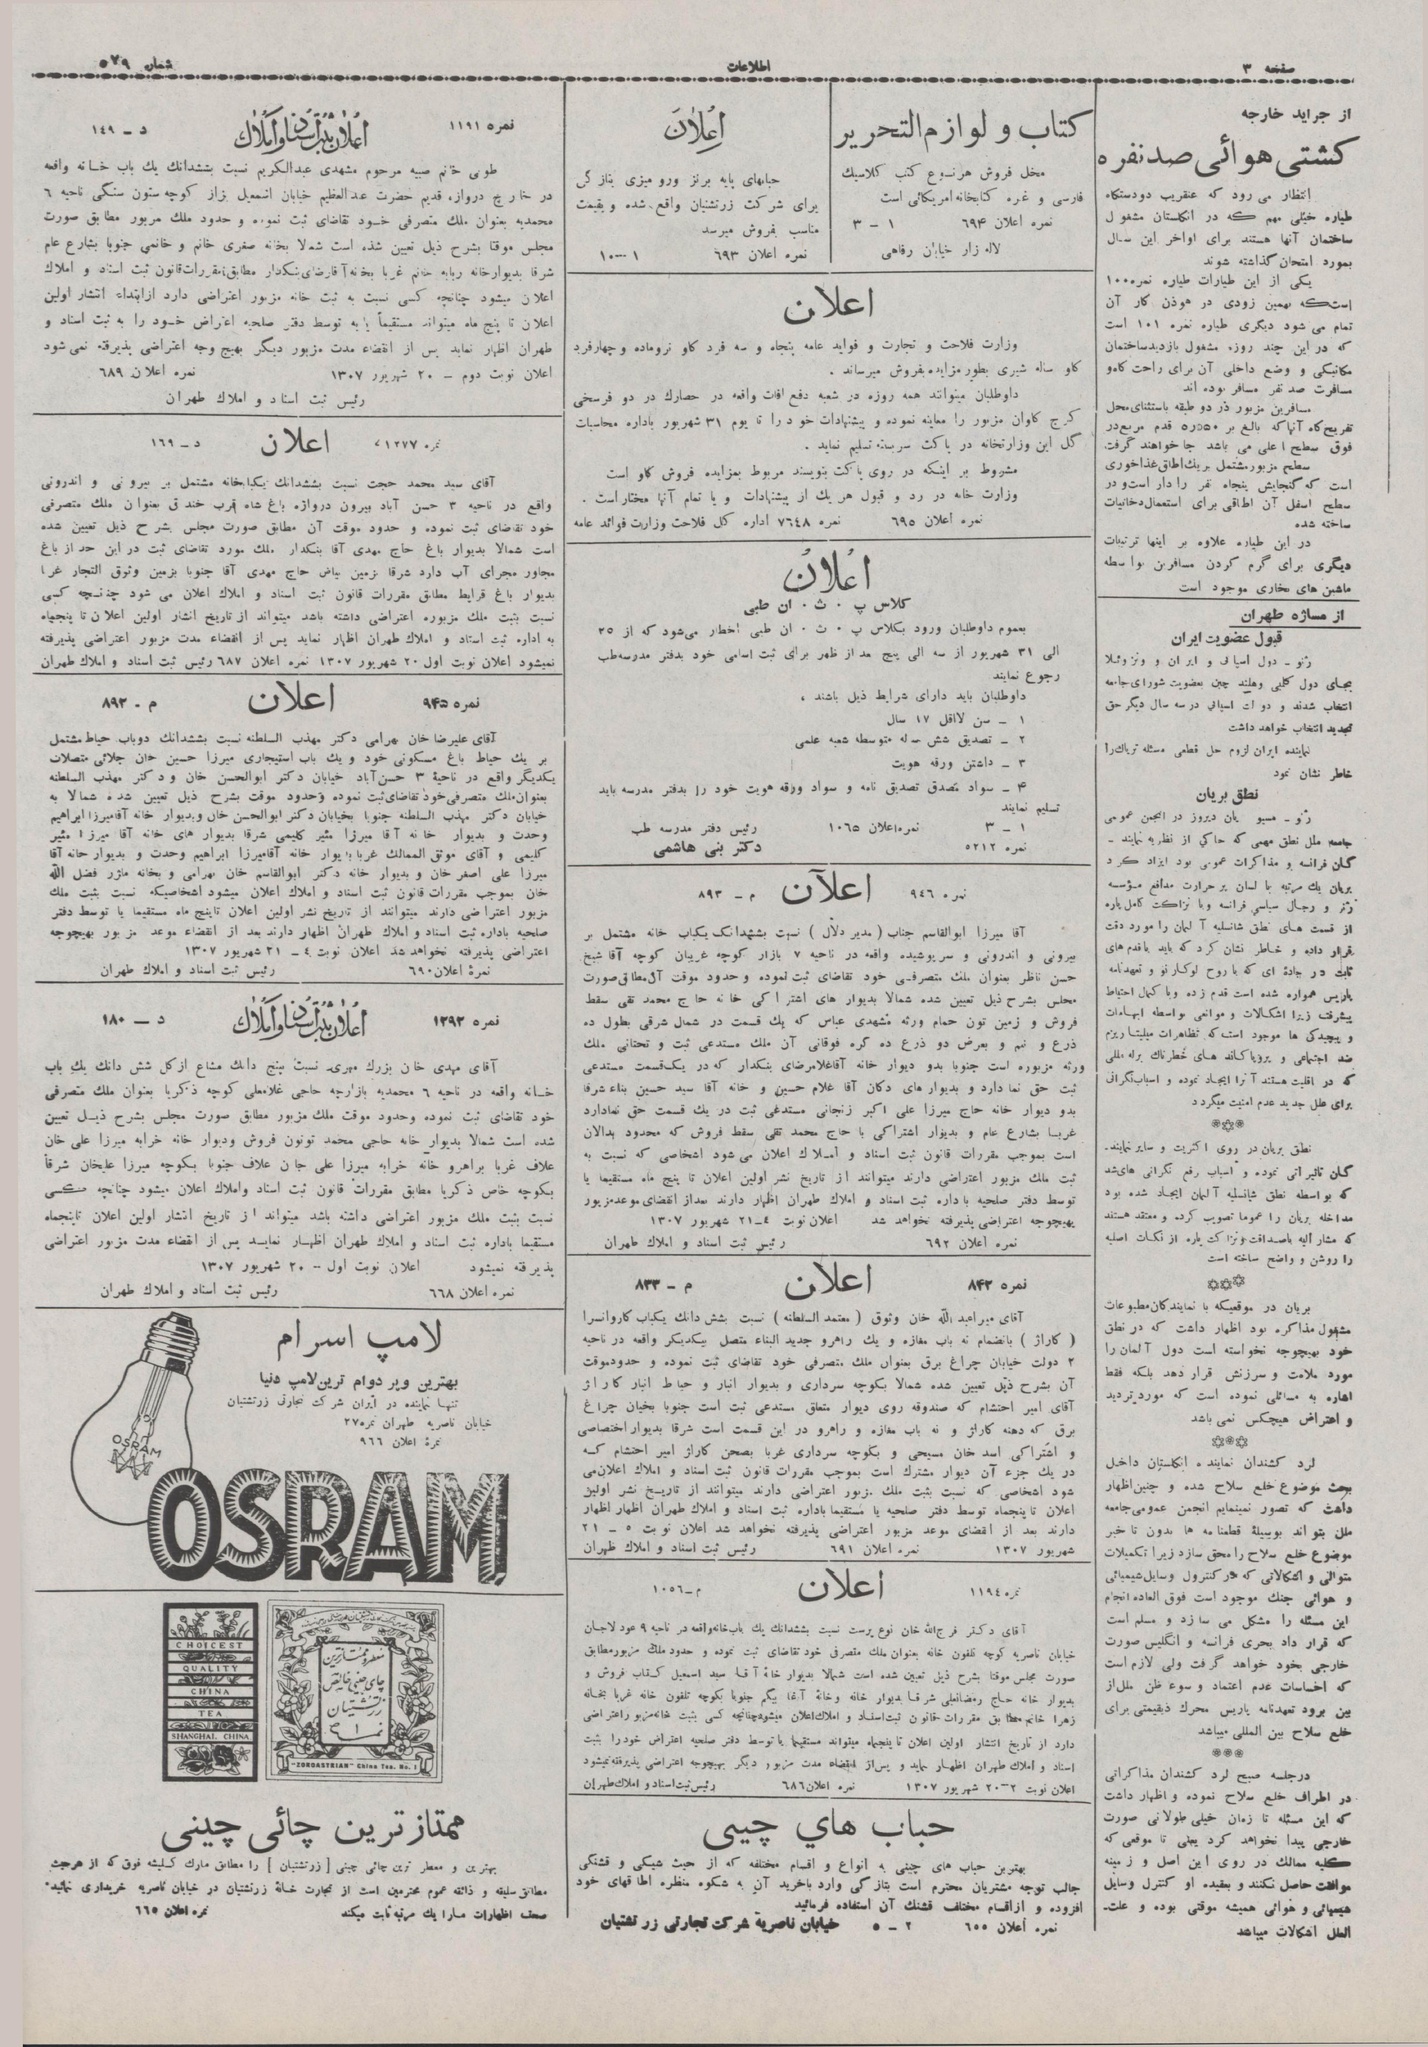 صفحه ۳
اطلاعات
شماره ۵۷۹
از جراید خارجه
کشتی هوائی صد نفره
انتظار می رود که عنقریب دودستگاه
طیاره خیلی مهم که در انگلستان مشغول
ساختمان آنها هستند برای اواخر این سال
بمورد امتحان گذاشته شوند
یکی از این طیارات طیاره نمره ۱۰۰
است که بهمین زودی در هوذن کار آن
تمام می شود دیگری طیاره نمره ۱۰۱ است
که در این چند روزه مشغول بازدید ساختمان
مکانیکی و وضع داخلی آن برای راحت کاه و
مسافرت صد نفر مسافر بوده اند
مسافرین مزبور در دو طبقه باستثنای محل
تفریح گاه آنها که بالغ بر ۵۵۰۰ قدم مربع در
فوق سطح اعلی می باشد جا خواهند گرفت
سطح مزبور مشتمل بریک اطاق غذاخوری
است که گنجایش پنجاه نفر را دار است و در
سطح اسفل آن اطاقی برای استعمال دخانیات
ساخته شده
در این طیاره علاوه بر اینها ترتیبات
دیگری برای گرم کردن مسافرین بواسطه
ماشین های بخاری موجود است
از مساژه طهران
قبول عضویت ایران
ژنو ـ دول اسپانی و ایران و ونزوئلا
بجای دول کلمبی وهلند چین بعضویت شورای جامعه
انتخاب شدند و دولت اسپانی در سه سال دیگر حق
تجدید انتخاب خواهد داشت
نماینده ایران لزوم حل قطعی مسئله تریاک را
خاطر نشان نمود
نطق بریان
ژنو ـ مسیو بریان دیروز در انجمن عمومی
جامعه ملل نطق مهمی که حاکی از نظریه نمایند ـ
گان فرانسه و مذاکرات عمومی بود ایراد کرد
بریان یک مرتبه با لسان پر حرارت مدافع مؤسسه
ژنو و رجال سیاسی فرانسه و با نزاکت کامل پاره
از قسمت های نطق شانسلیه آلمان را مورد دقت
قرار داده و خاطر نشان کرد که باید با قدم های
ثابت در جاده ای که با روح لوکارنو و تعهدنامه
پاریس همواره شده است قدم زده و با کمال احتیاط
پیشرفت زیرا اشکالات و موانعی بواسطه ابهامات
و پیچیدگی ها موجود است که تظاهرات میلیتاریزم
ضد اجتماعی و پروپاگاند های خطرناک برله مللی
که در اقلیت هستند آنرا ایجاد نموده و اسباب نگرانی
برای علل جدید عدم امنیت میگردد
نطق بریان در روی اکثریت و سایر نمایند ـ
گان تاثیراتی نموده و اسباب رفع نگرانی های شد
که بواسطه نطق شانسلیه آلمان ایجاد شده بود
مداخله بریان را عموما تصویب کرده و معتقد هستند
که مشار الیه باصداقت و نزاکت پاره از نکات اصلیه
را روشن و واضح ساخته است
بریان در موقعیکه با نمایندگان مطبوعات
مشغول مذاکره بود اظهار داشت که در نطق
خود بهیچوجه نخواسته است دول آلمان را
مورد ملامت و سرزنش قرار دهد بلکه فقط
اشاره به مسائلی نموده است که مورد تردید
و اعتراض هیچکس نمی باشد
لرد کشندان نماینده انگلستان داخل
بحث موضوع خلع سلاح شده و چنین اظهار
داشت که تصور نمینمایم انجمن عمومی جامعه
ملل بتواند بوسیلهٔ قطعنامه ها بدون تاخیر
موضوع خلع سلاح را محق سازد زیرا تکمیلات
متوالی و اشکالاتی که در کنترول وسایل شیمیائی
و هوائی جنگ موجود است فوق العاده انجام
این مسئله را مشکل می سازد و مسلم است
که قرار داد بحری فرانسه و انگلیس صورت
خارجی بخود خواهد گرفت ولی لازم است
که احساسات عدم اعتماد و سوء ظن ملل از
بین برود تعهدنامه پاریس محرک ذیقیمتی برای
خلع سلاح بین المللی میباشد
درجلسه صبح لرد کشندان مذاکراتی
در اطراف خلع سلاح نموده و اظهار داشت
که این مسئله تا زمان خیلی طولانی صورت
خارجی پیدا نخواهد کرد یعنی تا موقعی که
کلیه ممالک در روی این اصل و زمینه
موافقت حاصل نکنند و بعقیده او کنترل وسایل
شیمیائی و هوائی همیشه موقتی بوده و علت ـ
العلل اشکالات میباشد
کتاب و لوازم التحریر
محل فروش هر نوع کتب کلاسیک
فارسی و غره کتابخانه امریکائی است
نمره اعلان ۶۹۴ ۱ ـ ۳
لاله زار خیابان رفاهی
اعلان
حبابهای پایه برنز ورومیزی بتازگی
برای شرکت زرتشتیان واقع شده و بقیمت
مناسب بفروش میرسد
نمره اعلان ۶۹۳ ۱ ـ ۱۰
اعلان
وزارت فلاحت و تجارت و فواید عامه پنجاه و سه فرد گاو نروماده و چهارفرد
گاو ساله شیری بطور مزایده بفروش میرساند .
داوطلبان میتوانند همه روزه در شعبه دفع آفات واقعه در حصارک در دو فرسخی
کرج گاوان مزبور را معاینه نموده و پیشنهادات خود را تا یوم ۳۱ شهریور باداره محاسبات
کل این وزارتخانه در پاکت سربسته تسلیم نماید .
مشروط بر اینکه در روی پاکت بنویسند مربوط بمزایده فروش گاو است
وزارت خانه در رد و قبول هر یک از پیشنهادات و یا تمام آنها مختار است .
نمره اعلان ۶۹۵ نمره ۷۶۴۸ اداره کل فلاحت وزارت فوائد عامه
اعلان
کلاس پ ۰ ث ۰ ان طبی
بعموم داوطلبان ورود بکلاس پ ۰ ث ۰ ان طبی اخطار می‌شود که از ۲۵
الی ۳۱ شهریور از سه الی پنج بعد از ظهر برای ثبت اسامی خود بدفتر مدرسه طب
رجوع نمایند
داوطلبان باید دارای شرایط ذیل باشند ،
۱ ـ سن لااقل ۱۷ سال
۲ ـ تصدیق شش ساله متوسطه شعبه علمی
۳ ـ داشتن ورقه هویت
۴ ـ سواد مصدق تصدیق نامه و سواد ورقه هویت خود را بدفتر مدرسه باید
تسلیم نمایند
۱ ـ ۳ نمره اعلان ۱۰۶۵ رئیس دفتر مدرسه طب
نمره ۵۲۱۲ دکتر بنی هاشمی
نمره ۹۴۶ اعلان م ـ ۸۹۳
آقا میرزا ابوالقاسم جناب ( مدیر دلال ) نسبت بششدانگ یکباب خانه مشتمل بر
بیرونی و اندرونی و سرپوشیده واقعه در ناحیه ۷ بازار کوچه غریبان کوچه آقا شیخ
حسن ناظر بعنوان ملک متصرفی خود تقاضای ثبت نموده و حدود موقت آن مطابق صورت
مجلس بشرح ذیل تعیین شده شمالا بدیوار های اشتراکی خانه حاج محمد تقی سقط
فروش و زمین تون حمام ورثه مشهدی عباس که یک قسمت در شمال شرقی بطول ده
ذرع و نیم و بعرض دو ذرع ده گره فوقانی آن ملک مستدعی ثبت و تحتانی ملک
ورثه مزبوره است جنوبا بدو دیوار خانه آقاغلامرضای بنکدار که در یک قسمت مستدعی
ثبت حق نما دارد و بدیوار های دکان آقا غلام حسین و خانه آقا سید حسین بناء شرقا
بدو دیوار خانه حاج میرزا علی اکبر زنجانی مستدعی ثبت در یک قسمت حق نمادارد
غربا بشارع عام و بدیوار اشتراکی با حاج محمد تقی سقط فروش که محدود بدالان
است بموجب مقررات قانون ثبت اسناد و املاک اعلان می شود اشخاصی که نسبت به
ثبت ملک مزبور اعتراضی دارند میتوانند از تاریخ نشر اولین اعلان تا پنج ماه مستقیما یا
توسط دفتر صلحیه باداره ثبت اسناد و املاک طهران اظهار دارند بعد از انقضای موعد مزبور
بهیچوجه اعتراضی پذیرفته نخواهد شد اعلان نوبت ٤ ـ ۲۱ شهریور ۱۳۰۷
نمره اعلان ۶۹۲ رئیس ثبت اسناد و املاک طهران
نمره ۸۴۳ اعلان م ـ ۸۳۳
آقای میر عبدالله خان وثوق ( معتمد السلطنه ) نسبت بشش دانگ یکباب کاروانسرا
( گاراژ ) بانضمام نه باب مغازه و یک راهرو جدید البناء متصل بیکدیگر واقعه در ناحیه
۲ دولت خیابان چراغ برق بعنوان ملک متصرفی خود تقاضای ثبت نموده و حدود موقت
آن بشرح ذیل تعیین شده شمالا بکوچه سرداری و بدیوار انبار و حیاط انبار گاراژ
آقای امیر احتشام که صندوقه روی دیوار متعلق مستدعی ثبت است جنوبا بخیابان چراغ
برق که دهنه گاراژ و نه باب مغازه و راهرو در این قسمت است شرقا بدیوار اختصاصی
و اشتراکی اسد خان مسیحی و بکوچه سرداری غربا بصحن گاراژ امیر احتشام که
در یک جزء آن دیوار مشترک است بموجب مقررات قانون ثبت اسناد و املاک اعلان می
شود اشخاصی که نسبت بثبت ملک مزبور اعتراضی دارند میتوانند از تاریخ نشر اولین
اعلان تا پنجماه توسط دفتر صلحیه یا مستقیما باداره ثبت اسناد و املاک طهران اظهار اظهار
دارند بعد از انقضای موعد مزبور اعتراضی پذیرفته نخواهد شد اعلان نوبت ۵ ـ ۲۱
شهریور ۱۳۰۷ نمره اعلان ۶۹۱ رئیس ثبت اسناد و املاک طهران
نمره ۱۱۹٤ اعلان م ـ ۱۰۵۶
آقای دکتر فرج‌الله خان نوع پرست نسبت بششدانگ یک باب خانه واقعه در ناحیه ۹ عودلاجان
خیابان ناصریه کوچه تلفون خانه بعنوان ملک متصرفی خود تقاضای ثبت نموده و حدود ملک مزبور مطابق
صورت مجلس موقتا بشرح ذیل تعیین شده است شمالا بدیوار خانهٔ آقا سید اسمعیل کتاب فروش و
بدیوار خانه حاج رمضانعلی شرقا بدیوار خانه وخانهٔ آغا بیگم جنوبا بکوچه تلفون خانه غربا بخانه
زهرا خانم مطابق مقررات قانون ثبت اسناد و املاک اعلان میشود چنانچه کسی بثبت خانه مزبور اعتراضی
دارد از تاریخ انتشار اولین اعلان تا پنجماه میتواند مستقیما یا توسط دفتر صلحیه اعتراض خود را بثبت
اسناد و املاک طهران اظهار نماید و پس از انقضاء مدت مزبور دیگر بهیچوجه اعتراضی پذیرفته نمیشود
اعلان نوبت ۲ ـ ۲۰ شهریور ۱۳۰۷ نمره اعلان ۶۸۶ رئیس ثبت اسناد و املاک طهران
حباب های چینی
بهترین حباب های چینی به انواع و اقسام مختلفه که از حیث شیکی و قشنگی
جالب توجه مشتریان محترم است بتازگی وارد باخرید آن به شکوه منظره اطاقهای خود
افزوده و از اقسام مختلف قشنگ آن استفاده فرمائید
نمره اعلان ۶۵۵ ۲ ـ ۵ خیابان ناصریهٔ شرکت تجارتی زرتشتیان
نمره ۱۱۹۱ اعلان ثبت اسناد و املاک د ـ ۱۴۹
طوبی خانم صبیه مرحوم مشهدی عبدالکریم نسبت بششدانگ یک باب خانه واقعه
در خارج دروازه قدیم حضرت عبدالعظیم خیابان اسمعیل بزاز کوچه ستون سنگی ناحیه ۶
محمدیه بعنوان ملک متصرفی خود تقاضای ثبت نموده و حدود ملک مزبور مطابق صورت
مجلس موقتا بشرح ذیل تعیین شده است شمالا بخانه صغری خانم و خانمی جنوبا بشارع عام
شرقا بدیوارخانه ربابه خانم غربا بخانه آقارضای بنکدار مطابق مقررات قانون ثبت اسناد و املاک
اعلان میشود چنانچه کسی نسبت به ثبت خانه مزبور اعتراضی دارد از ابتداء انتشار اولین
اعلان تا پنج ماه میتواند مستقیماً یا به توسط دفتر صلحیه اعتراض خود را به ثبت اسناد و
طهران اظهار نماید پس از انقضاء مدت مزبور دیگر بهیچ وجه اعتراضی پذیرفته نمی شود
اعلان نوبت دوم ـ ۲۰ شهریور ۱۳۰۷ نمره اعلان ۶۸۹
رئیس ثبت اسناد و املاک طهران
نمره ۷۱۲۷۷ اعلان د ـ ۱۶۹
آقای سید محمد حجت نسبت بششدانگ یکباب خانه مشتمل بر بیرونی و اندرونی
واقع در ناحیه ۳ حسن آباد بیرون دروازه باغ شاه قرب خندق بعنوان ملک متصرفی
خود تقاضای ثبت نموده و حدود موقت آن مطابق صورت مجلس بشرح ذیل تعیین شده
است شمالا بدیوار باغ حاج مهدی آقا بنکدار ملک مورد تقاضای ثبت در این حد از باغ
مجاور مجرای آب دارد شرقا بزمین بیاض حاج مهدی آقا جنوبا بزمین وثوق التجار غربا
بدیوار باغ مطابق مقررات قانون ثبت اسناد و املاک اعلان می شود چنانچه کسی
نسبت بثبت ملک مزبوره اعتراضی داشته باشد میتواند از تاریخ انتشار اولین اعلان تا پنجماه
به اداره ثبت اسناد و املاک طهران اظهار نماید پس از انقضاء مدت مزبور اعتراضی پذیرفته
نمیشود اعلان نوبت اول ۲۰ شهریور ۱۳۰۷ نمره اعلان ۶۸۷ رئیس ثبت اسناد و املاک طهران
نمره ۹۴۵ اعلان م ـ ۸۹۲
آقای علیرضا خان بهرامی دکتر مهذب السلطنه نسبت بششدانگ دوباب حیاط مشتمل
بر یک حیاط باغ مسکونی خود و یک باب استیجاری میرزا حسین خان جلائی متصلات
یکدیگر واقع در ناحیهٔ ۳ حسن‌آباد خیابان دکتر ابوالحسن خان و دکتر مهذب السلطنه
بعنوان ملک متصرفی خود تقاضای ثبت نموده وحدود موقت بشرح ذیل تعیین شده شمالا به
خیابان دکتر مهذب السلطنه جنوبا بخیابان دکتر ابوالحسن خان وبدیوار خانه آقامیرزا ابراهیم
وحدت و بدیوار خانه آقا میرزا مشیر کلیمی شرقا بدیوار های خانه آقا میرزا مشیر
کلیمی و آقای موثق الممالک غربا بدیوار خانه آقامیرزا ابراهیم وحدت و بدیوار خانه آقا
میرزا علی اصغر خان و بدیوار خانه دکتر ابوالقاسم خان بهرامی و بخانه ماژر فضل الله
خان بموجب مقررات قانون ثبت اسناد و املاک اعلان میشود اشخاصیکه نسبت بثبت ملک
مزبور اعتراضی دارند میتوانند از تاریخ نشر اولین اعلان تاپنج ماه مستقیما یا توسط دفتر
صلحیه باداره ثبت اسناد و املاک طهران اظهار دارند بعد از انقضاء موعد مزبور بهیچوجه
اعتراضی پذیرفته نخواهد شد اعلان نوبت ٤ ـ ۲۱ شهریور ۱۳۰۷
نمرهٔ اعلان ۶۹۰ رئیس ثبت اسناد و املاک طهران
نمره ۱۳۹۳ اعلان ثبت اسناد و املاک د ـ ۱۸۰
آقای مهدی خان بزرگ مهری نسبت پنج دانگ مشاع از کل شش دانگ یک باب
خانه واقعه در ناحیه ۶ محمدیه بازارچه حاجی غلامعلی کوچه ذکریا بعنوان ملک متصرفی
خود تقاضای ثبت نموده وحدود موقت ملک مزبور مطابق صورت مجلس بشرح ذیل تعیین
شده است شمالا بدیوار خانه حاجی محمد توتون فروش ودیوار خانه خرابه میرزا علی خان
علاف غربا براهرو خانه خرابه میرزا علی جان علاف جنوبا بکوچه میرزا علیخان شرقا
بکوچه خاص ذکریا مطابق مقررات قانون ثبت اسناد واملاک اعلان میشود چنانچه کسی
نسبت بثبت ملک مزبور اعتراضی داشته باشد میتواند از تاریخ انتشار اولین اعلان تاپنجماه
مستقیما باداره ثبت اسناد و املاک طهران اظهار نماید پس از انقضاء مدت مزبور اعتراضی
پذیرفته نمیشود اعلان نوبت اول ـ ۲۰ شهریور ۱۳۰۷
نمره اعلان ۶۶۸ رئیس ثبت اسناد و املاک طهران
لامپ اسرام
بهترین وپر دوام ترین لامپ دنیا
تنها نماینده در ایران شرکت تجارتی زرتشتیان
خیابان ناصریه طهران نمره ۲۷
نمرهٔ اعلان ۹۶۶
OSRAM
OSRAM
CHOICEST
QUALITY
CHINA
TEA
SHANGHAI, CHINA
معطر و ممتازترین
چای چینی خالص
زرتشتیان
نمره ۱
"ZOROASTRIAN" China Tea. No. 1
ممتاز ترین چائی چینی
بهترین و معطر ترین چائی چینی [ زرتشتیان ] را مطابق مارک کلیشه فوق که از هرحیث
مطابق سلیقه و ذائقه عموم محترمین است از تجارت خانهٔ زرتشتیان در خیابان ناصریه خریداری نمائید.
صحت اظهارات مارا یک مرتبه ثابت میکند نمره اعلان ۶۶۵